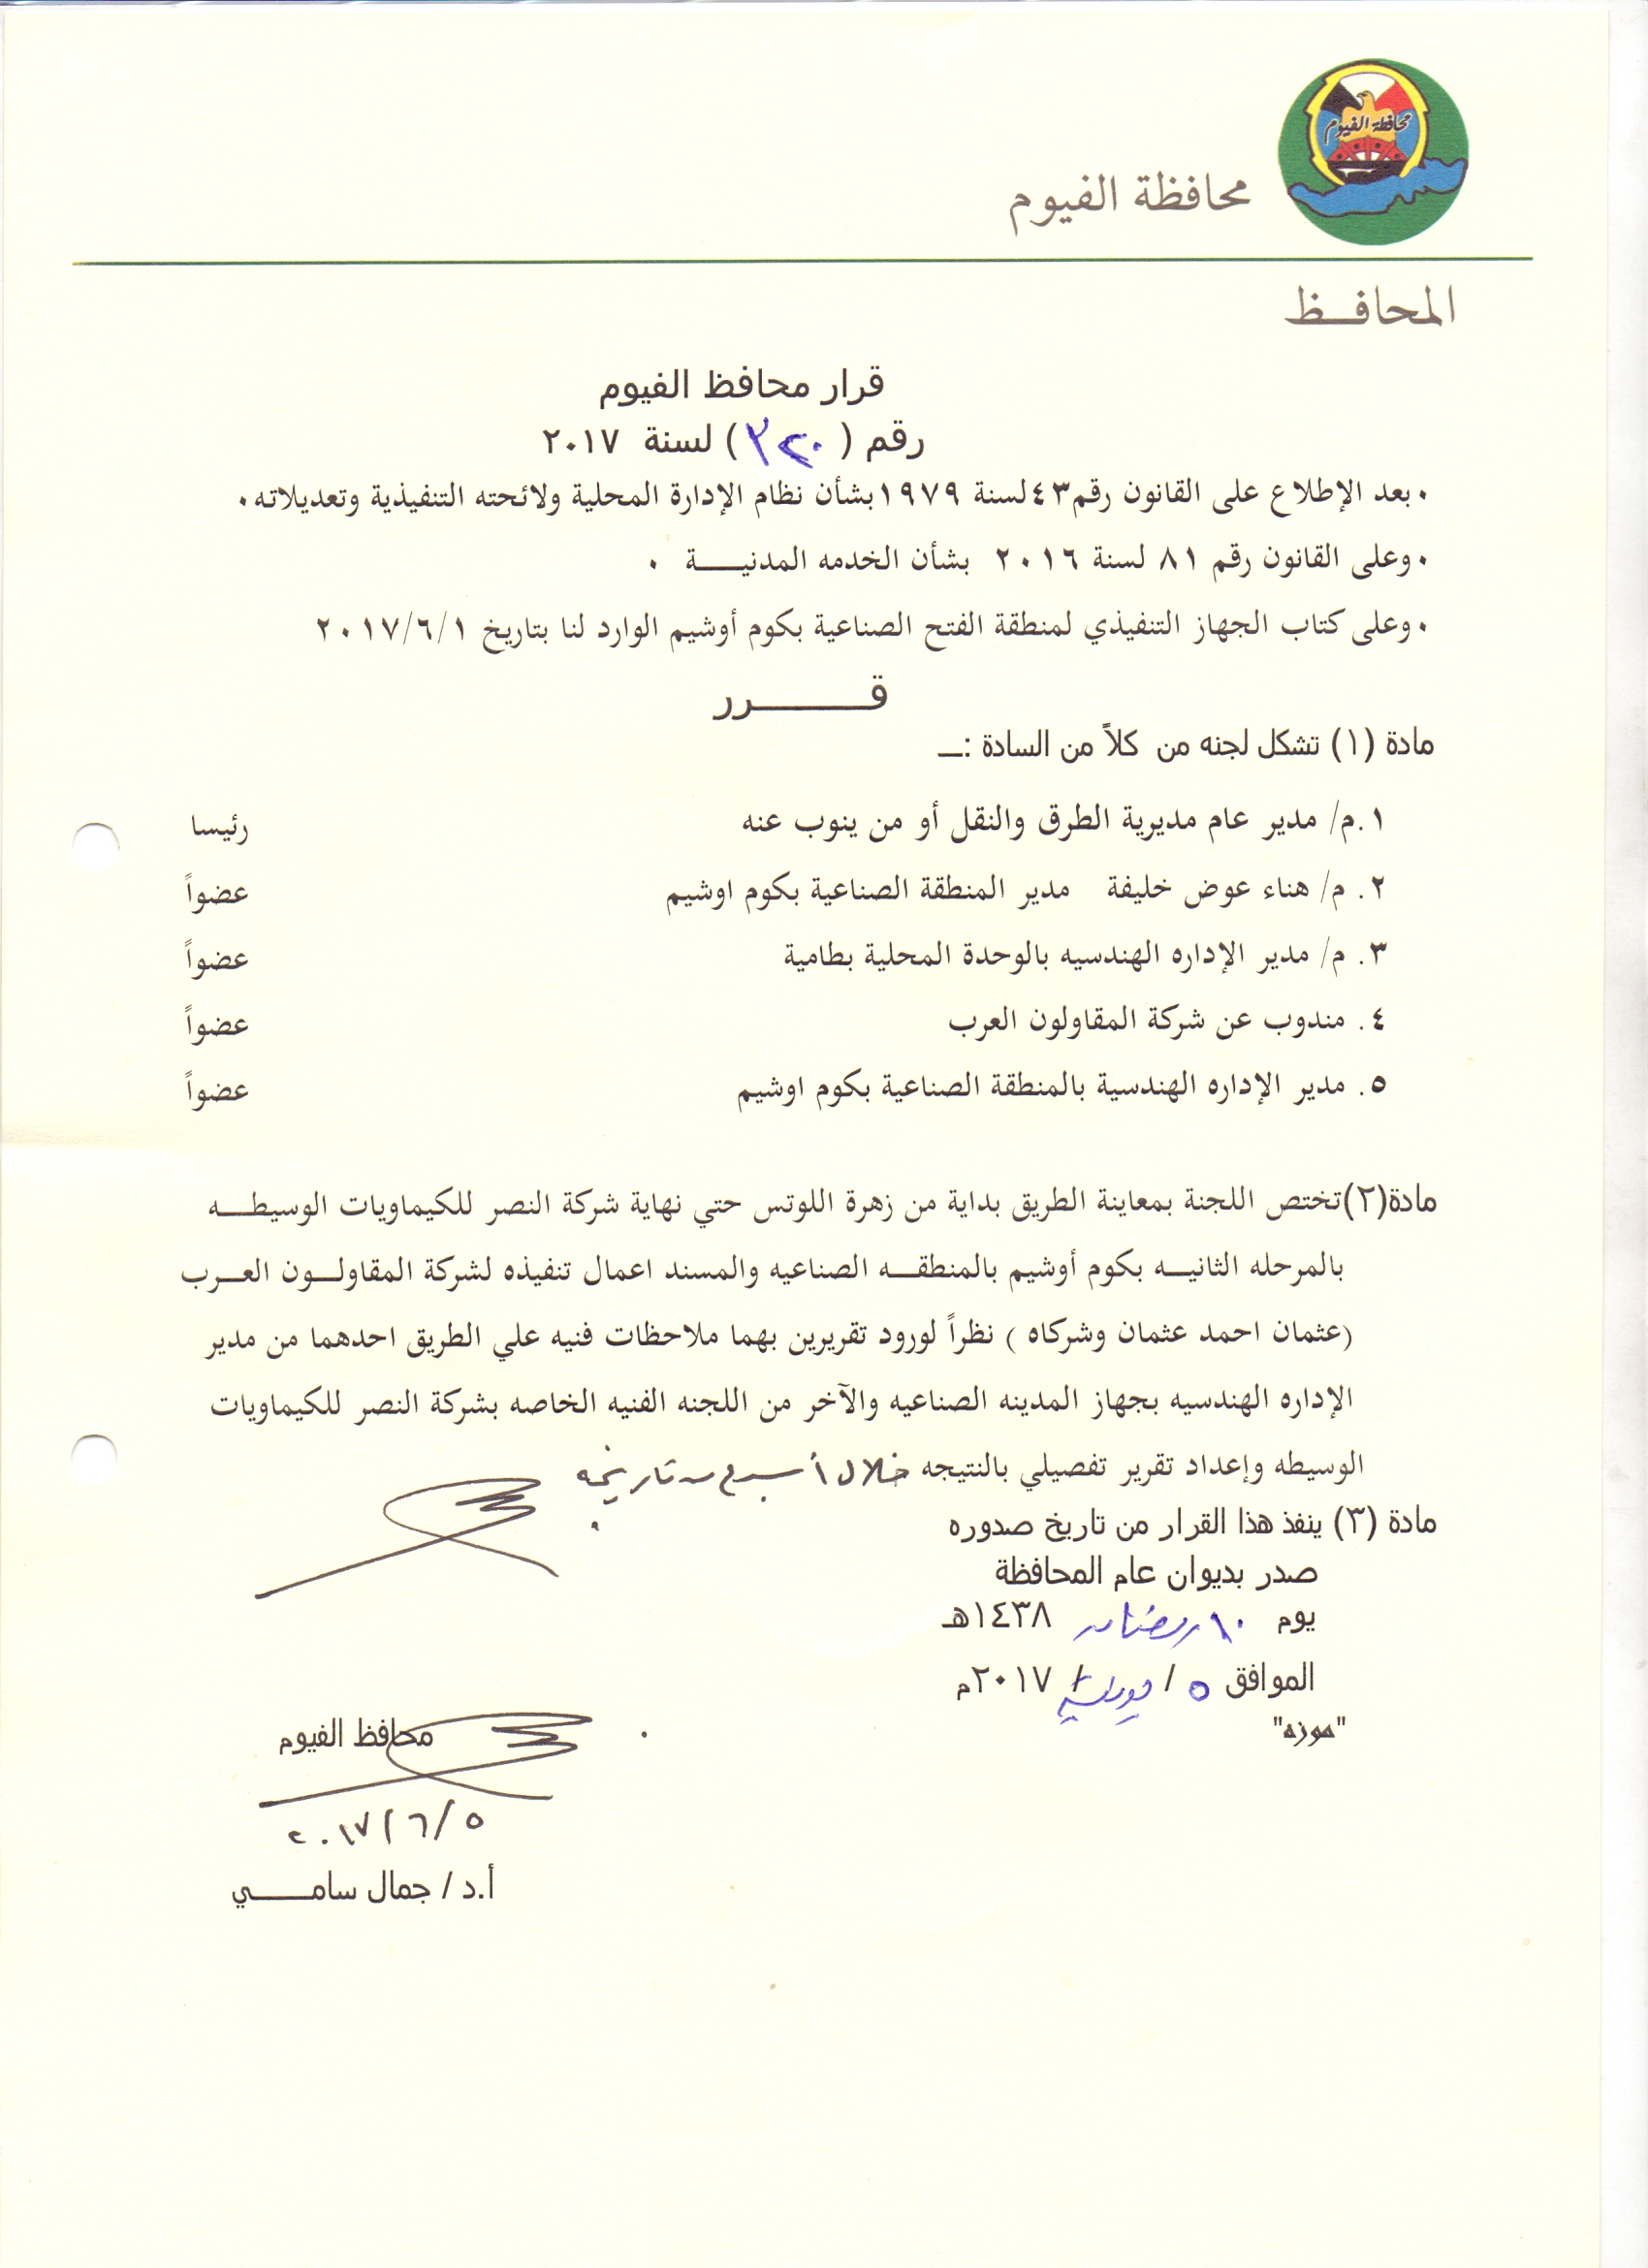 محافظة الفيوم
محافظة الفيوم
المحافــظ
قرار محافظ الفيوم
رقم ( ٣٢٠ ) لسنة ٢٠١٧
٠ بعد الإطلاع على القانون رقم٤٣ لسنة ١٩٧٩بشأن نظام الإدارة المحلية ولائحته التنفيذية وتعديلاته ٠
٠ وعلى القانون رقم ٨١ لسنة ٢٠١٦ بشأن الخدمه المدنيــــة ٠
٠ وعلى كتاب الجهاز التنفيذي لمنطقة الفتح الصناعية بكوم أوشيم الوارد لنا بتاريخ ٢٠١٧/٦/١
قـــــــــرر
مادة (١) تشكل لجنه من كلاً من السادة :ــ
١.م/ مدير عام مديرية الطرق والنقل أو من ينوب عنه رئيسا
٢. م/ هناء عوض خليفة مدير المنطقة الصناعية بكوم اوشيم عضواً
٣. م/ مدير الإداره الهندسيه بالوحدة المحلية بطامية عضواً
٤. مندوب عن شركة المقاولون العرب عضواً
٥. مدير الإداره الهندسية بالمنطقة الصناعية بكوم اوشيم عضواً
مادة(٢)تختص اللجنة بمعاينة الطريق بداية من زهرة اللوتس حتي نهاية شركة النصر للكيماويات الوسيطـــه
بالمرحله الثانيـــه بكوم أوشيم بالمنطقـــه الصناعيه والمسند اعمال تنفيذه لشركة المقاولـــون العـــرب
(عثمان احمد عثمان وشركاه ) نظراً لورود تقريرين بهما ملاحظات فنيه علي الطريق احدهما من مدير
الإداره الهندسيه بجهاز المدينه الصناعيه والآخر من اللجنه الفنيه الخاصه بشركة النصر للكيماويات
الوسيطه وإعداد تقرير تفصيلي بالنتيجه خلال أسبوع من تاريخه
مادة (٣) ينفذ هذا القرار من تاريخ صدوره
صدر بديوان عام المحافظة
يوم ١٠ رمضان ١٤٣٨هـ
الموافق ٥ / يونيه / ٢٠١٧م
"موزه"
محافظ الفيوم
٢٠١٧/٦/٥
أ.د / جمال سامـــــي